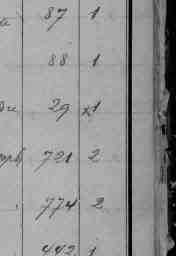 87 1
88 1
29 x1
721 2
774 2
442 1